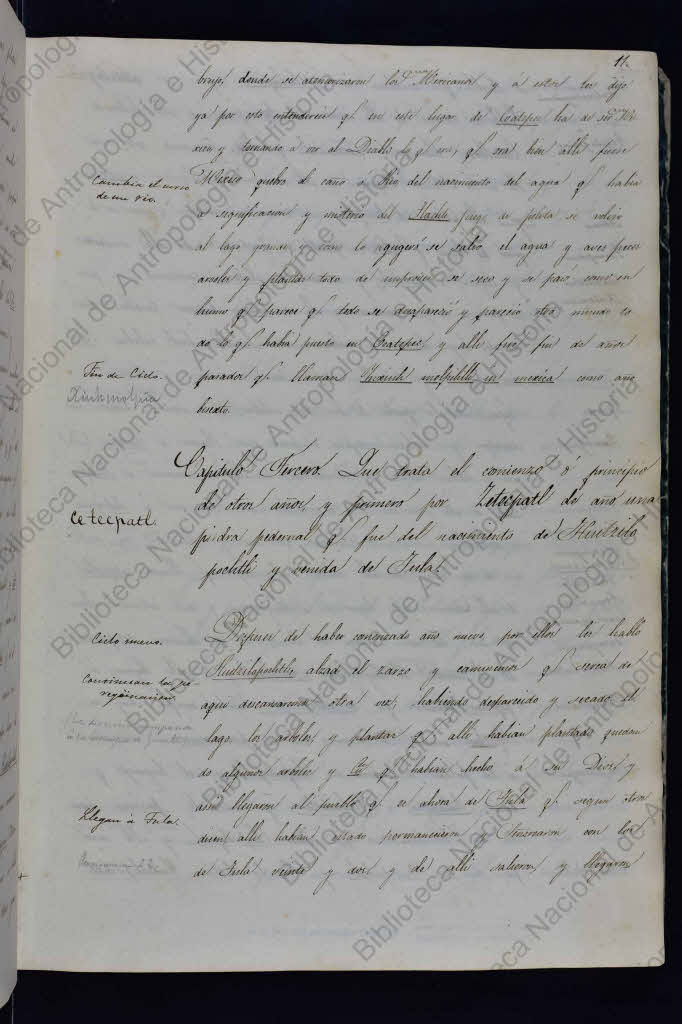 11.
brujo, donde se atemorizaron los Mexicanos y á estos les dijo
ya por esto entenderéis qf en este lugar de Coatepec ha de ser Mé-
xico y tornando á ver al Diablo lo qf era, qf era bien alli fuese
Mexico quebro el caño ó Rio del nacimiento del agua qf habia
á significacion y misterio del Tlachtli juego de pelota se volvio
al lago grande y con lo agugeró se salio el agua y aves peces
arboles y plantas todo de improviso se seco y se pasó como en
humo qf parece qf todo se desaparecio y parecio otro mundo to-
do lo qf habia puesto en Coatepec, y alli fue fin de años
pasados qf llaman Inxiuh molpilli in mexica como año
bisexto.
Cambia el curso
de un rio.
Fin de Ciclo.
Xiuhmolpia
Capitulo Tercero. Que trata el comienzo ó principio
de otros años, y primero por Zetecpatl de año una
piedra pedernal qf fue del nacimiento de Huitzilo
pochtli y venida de Tula.
Cetecpatl.
Despues de haber comenzado año nuevo, por ellos les habló
Huitzilopochtli, alzad el zarzo y caminemos qf cerca de
aqui descansaremos otra vez, habiendo desparecido y secado el
lago, los arboles, y plantas qf alli habian plantado quedan
do algunos arboles y Cú qf habian hecho á su Dios y
asi llegaron al pueblo qf es ahora de Tula qf segun otros
dicen alli habian estado permanecieron y Señorearon con los
de Tula veinte y dos y de alli salieron, y llegaron
Ciclo nuevo.
Continuan la pe-
regrinacion.
Llegan á Tula.
Biblioteca Nacional de Antropología e Historia